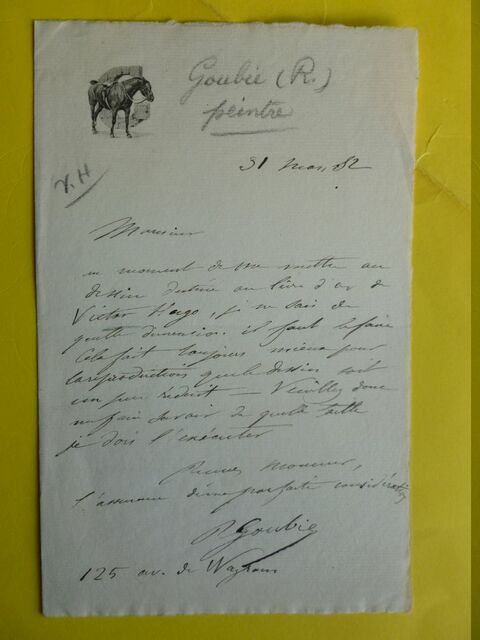 Goubie (R.)
peintre
31 mars 82
V. H
Monsieur
au moment de me mettre au
dessin destiné au livre d'or de
Victor Hugo, je ne sais de
quelle dimension il faut le faire
Cela fait toujours mieux pour
la reproduction que le dessin soit
un peu réduit — Veuillez donc
me faire savoir de quelle taille
je dois l'exécuter
Recevez Monsieur,
l'assurance d'une parfaite considération
R Goubie
125 av. de Wagram